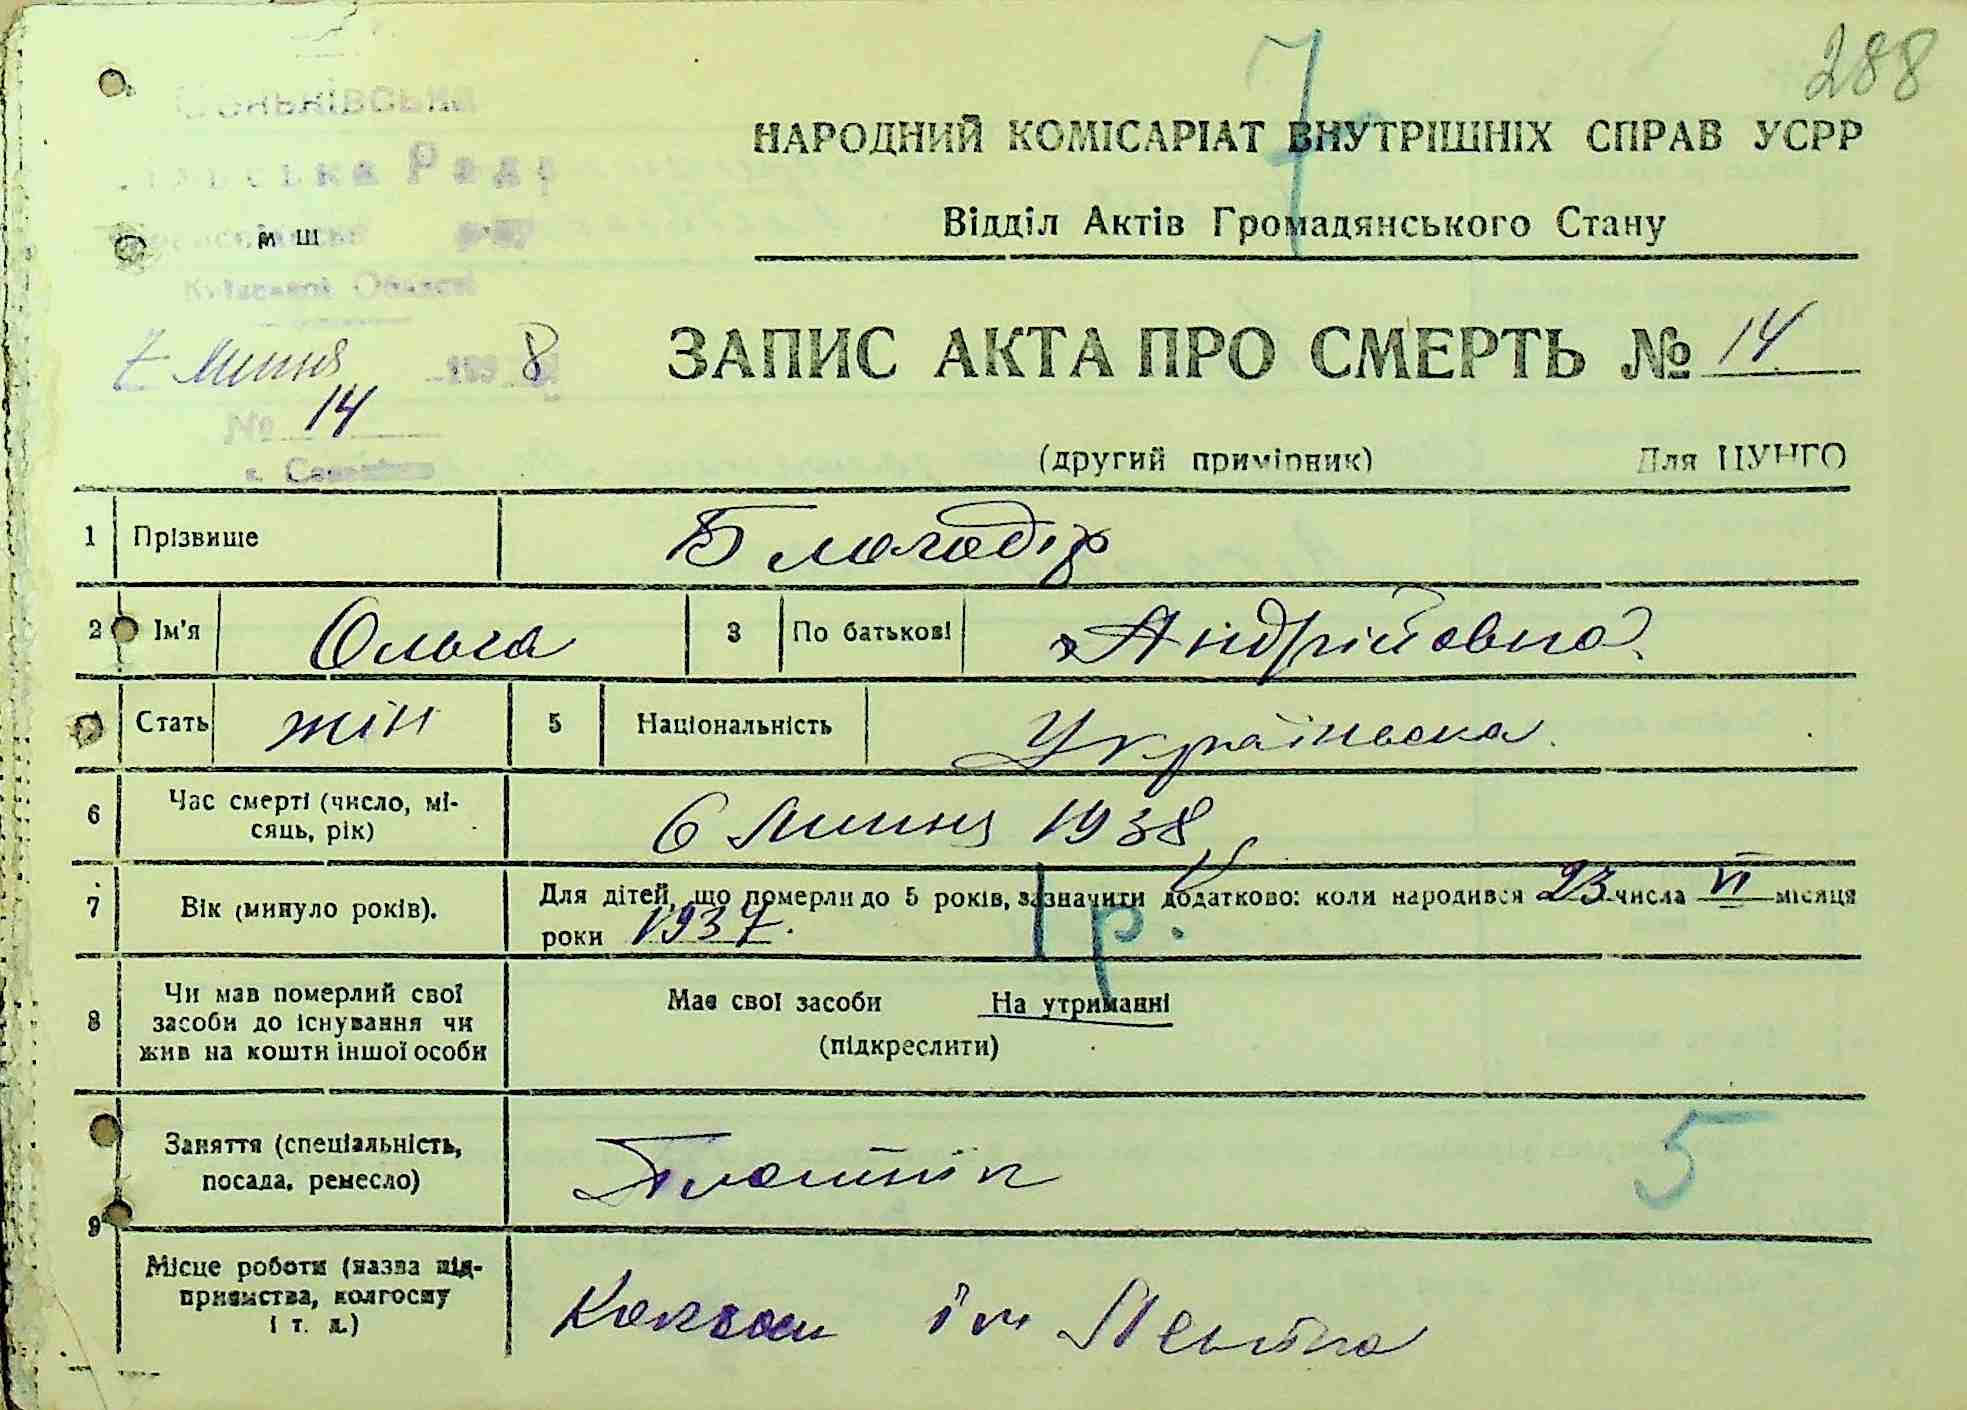 288
7
НАРОДНИЙ КОМІСАРІАТ ВНУТРІШНІХ СПРАВ УСРР
Відділ Актів Громадянського Стану
Рада
Київської Області
7 Липня 193 8
№ 14
ЗАПИС АКТА ПРО СМЕРТЬ № 14
(другий примірник) Для ЦУНГО
1 Прізвище Благодір
2 Ім'я Ольга 3 По батькові Андрійовна
Стать жін 5 Національність Українська
6 Час смерті (число, мі-
сяць, рік) 6 Липня 1938
7 Вік (минуло років). Для дітей, що померли до 5 років, зазначити додатково: коли народився 23 числа VI місяця
роки 1937. 1 р.
8 Чи мав померлий свої
засоби до існування чи
жив на кошти іншої особи
Має свої засоби На утриманні
(підкреслити)
9 Заняття (спеціальність,
посада, ремесло) Плотнік 5
Місце роботи (назва під-
приємства, колгоспу
і т. д.) Колгосп ім Леніна